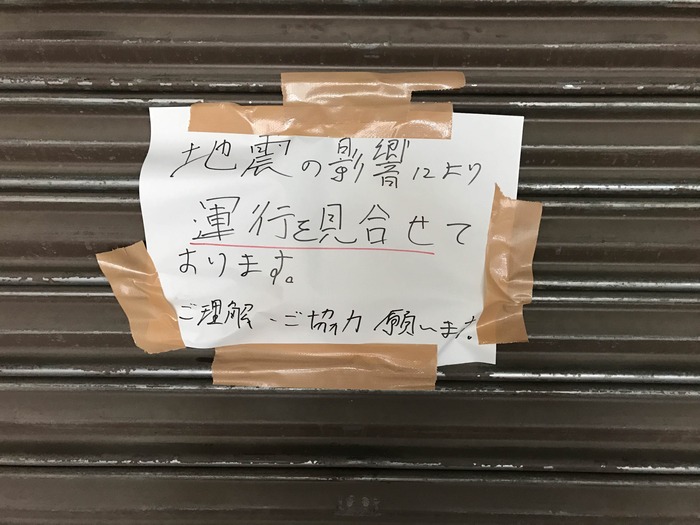 地震の影響により
運行を見合せて
おります。
ご理解・ご協力願います